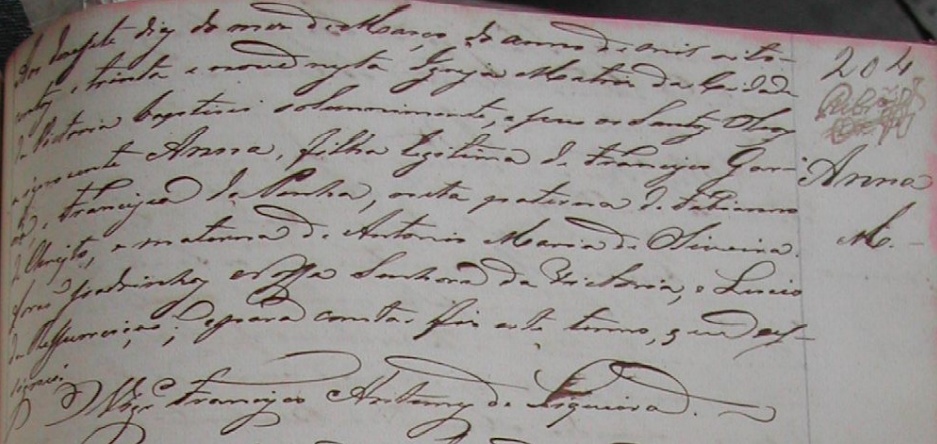 Aos desasete dias do mez de Março do anno de mil oito-
centos, e trinta e nove nesta Igreja Matriz da Cidade
da Victoria baptisei solemnemente, e puz os Santos Oleos
a innocente Anna, filha legitima de Francisco
e Francisca da Penha, neta paterna de Fabianno
de Christo, e materna de Antonio Maria de Siqueira.
forão padrinhos Nossa Senhora da Victoria, e Lucio
da Assumpção; e para constar fiz este termo, que as-
signei.
O Vigº Francisco Antunes de Siqueira.
204
Anna